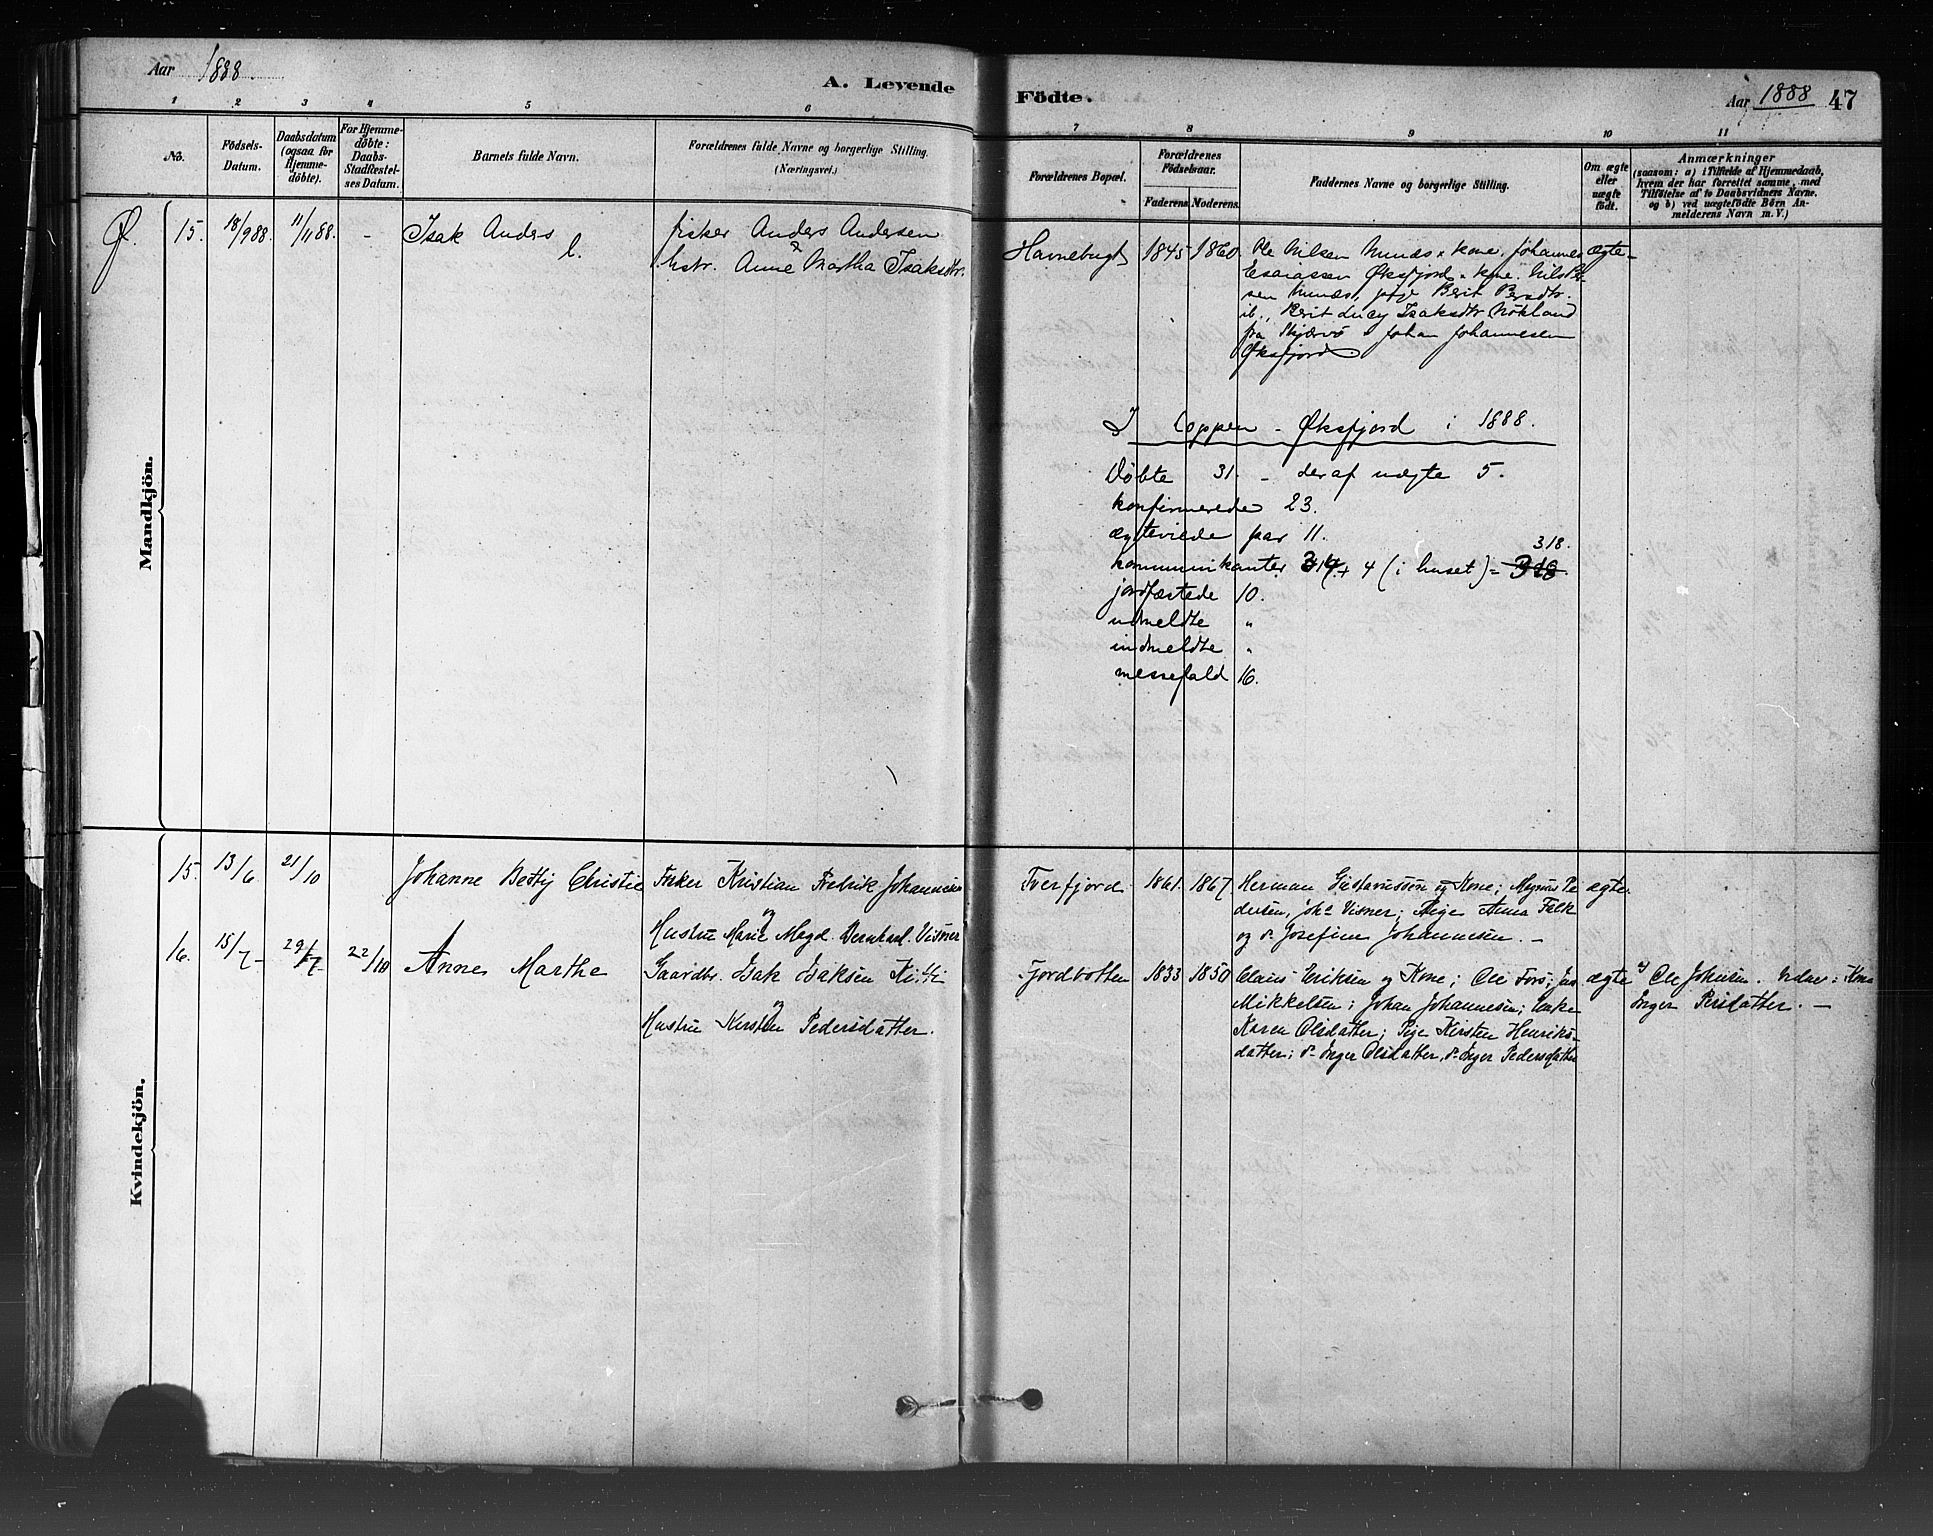 Aar 1888.
A. Levende
Födte.
Aar 1888 47
1 2 3 4 5 6 7 8 9 10 11
No.
Födsels-Datum.
Daabsdatum (ogsaa for Hjemmedöbte).
For Hjemmedöbte: Daabs-Stadfestelses Datum.
Barnets fulde Navn.
Forældrenes fulde Navne og borgerlige Stilling.
(Næringsvei.)
Forældrenes Bopæl.
Forældrenes Födselsaar.
Faderens Moderens
Faddernes Navne og borgerlige Stilling.
Om ægte eller uægte født.
Anmærkninger
(saasom: a) i Tilfælde af Hjemmedaab,
hvem der har forrettet samme, med
Tilføielse af to Daabsvidners Navne.
og b) ved uægtefödte Börn An-
melderens Navn m. V.)
Mandkjön.
Ø. 15. 18/9 88. 11/11 88. - Isak Anders
fisker Anders Andersen
&
hstr. Anne Martha Isaksdtr.
Havnebugt 1845 1860.
Ole Nilsen Munæs & kone, Johannes
Esaiassen Øksfjord & kone. Nils
sen Munæs, pige Berit Persdtr.
ib., Berit Lucy Isaksdtr. Nökland
fra Skjærvö & Johan Johannesen
Øksfjord
ægte
I Loppen - Øksfjord i 1888.
Döbte 31. - deraf uægte 5.
konfirmerede 23.
ægteviede par 11.
318.
kommunikanter 314 + 4 (i huset) = 318.
jordfæstede 10.
udmeldte "
indmeldte "
messefald 16.
Kvindekjön.
15. 13/6 21/10 Johanne Betty Christie
Fisker Kristian Fredrik Johannesen
og
Hustru Marie Magd. Bernhard. Visnes
Tverfjord 1861. 1867
Herman Gustavussen og Kone; Magnus Pe
dersen, Joh. Visner; Pige Anna Falk
og do. Josefine Johannesen. -
ægte.
16. 15/7 - 29/7 22/10 Anne Marthe
Gaardbr. Isak Isaksen Kitti
og
Hustru Kirsten Pedersdatter.
Fjordbotten 1833 1850
Claus Eriksen og Kone; Ole Fors;
Mikkelsen; Johan Johannesen; Enke
Karen Olsdatter; Pige Kirsten Henriks-
datter; do. Inger Olsdatter, do. Inger Pedersdatter
ægte
Ole Johnsen. Kone
Inger Persdatter. -